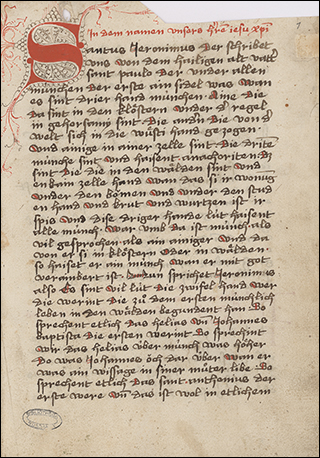 In dem namen unsers h̄rē iesu xpi
Sanctus Jeronimus der schribet
uns von dem hailigen alt vatt
sant paulo der under allen
munchen der erste ain sidel was wan
es sint drier hand müncher. Aine die
da sint in den klöstern under d̄ regel
in gehorsami sint. die andn̄ die von d̄
welt sich in die wüsti hand gezogen.
und ainige in ainer zelle sint. die dritē
münche sint und haisent anachoriten. d
sint die die in den wälden sint und
enkain zelle hand wan das si ir wonūg
under den bömen und under den stud
en hand und krut und wurtzen ist ir
spis und dise driger hande lüt haisent
alle münch. war umb da ist münch als
vil gesprochen als ain ainiger und da
von er si in klöstern oder in wälden
so haiset er ain münch wan er mit got
verainbert ist. sprichet Jeronimus
also Es sint vil lüt die zwifel hand wer
die werint die zü dem ersten münchlich
leben in den wälden begundent han. So
sprechent etlich das helias un̄ Johannes
baptista die ersten werint. So sprechint
wir das helias über münch was höher
do was Johannes öch dar über wan er
was ain wissage in siner müter libe. So
sprechent etlich das sant anthonius der
erste were un̄ das ist wol in etlichem